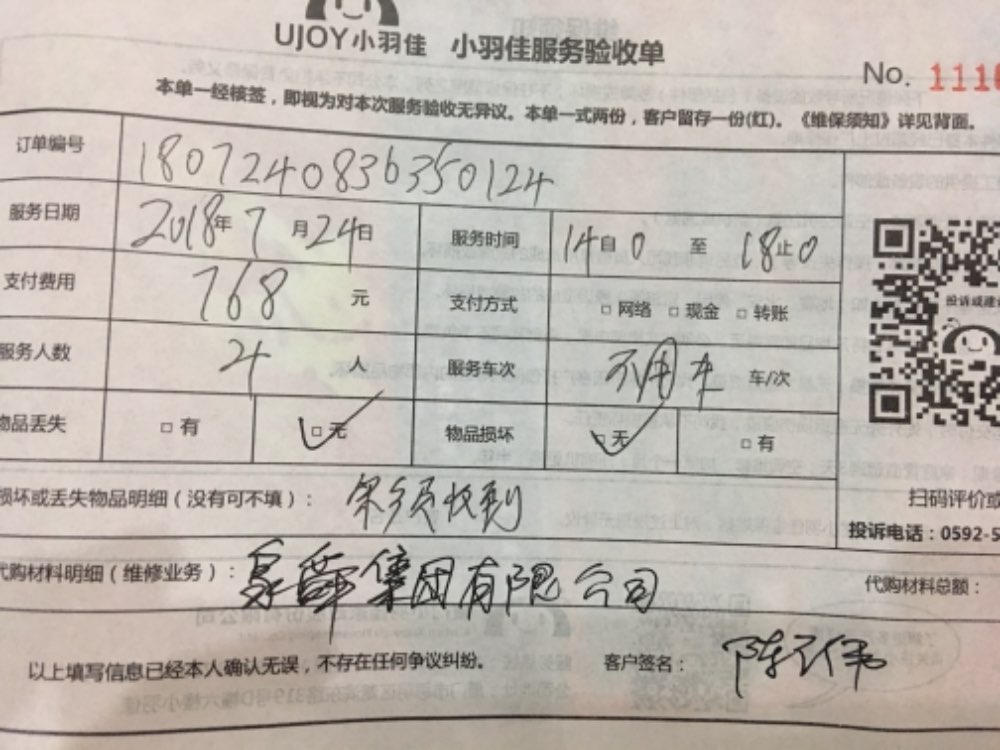 UJOY小羽佳 小羽佳服务验收单
No. 1110
本单一经核签，即视为对本次服务验收无异议。本单一式两份，客户留存一份(红)。《维保须知》详见背面。
订单编号 1807240836350124
服务日期 2018年7月24日 服务时间 14自0 至 18止0
支付费用 768 元 支付方式 □网络 □现金 □转账
投诉或建
服务人数 4 人 服务车次 不用车 车/次
物品丢失 □有 □无 物品损坏 □无 □有
损坏或丢失物品明细（没有可不填）： 余额收到
扫码评价或
投诉电话：0592-5
代购材料明细（维修业务）： 集团有限公司
代购材料总额：
以上填写信息已经本人确认无误，不存在任何争议纠纷。 客户签名：